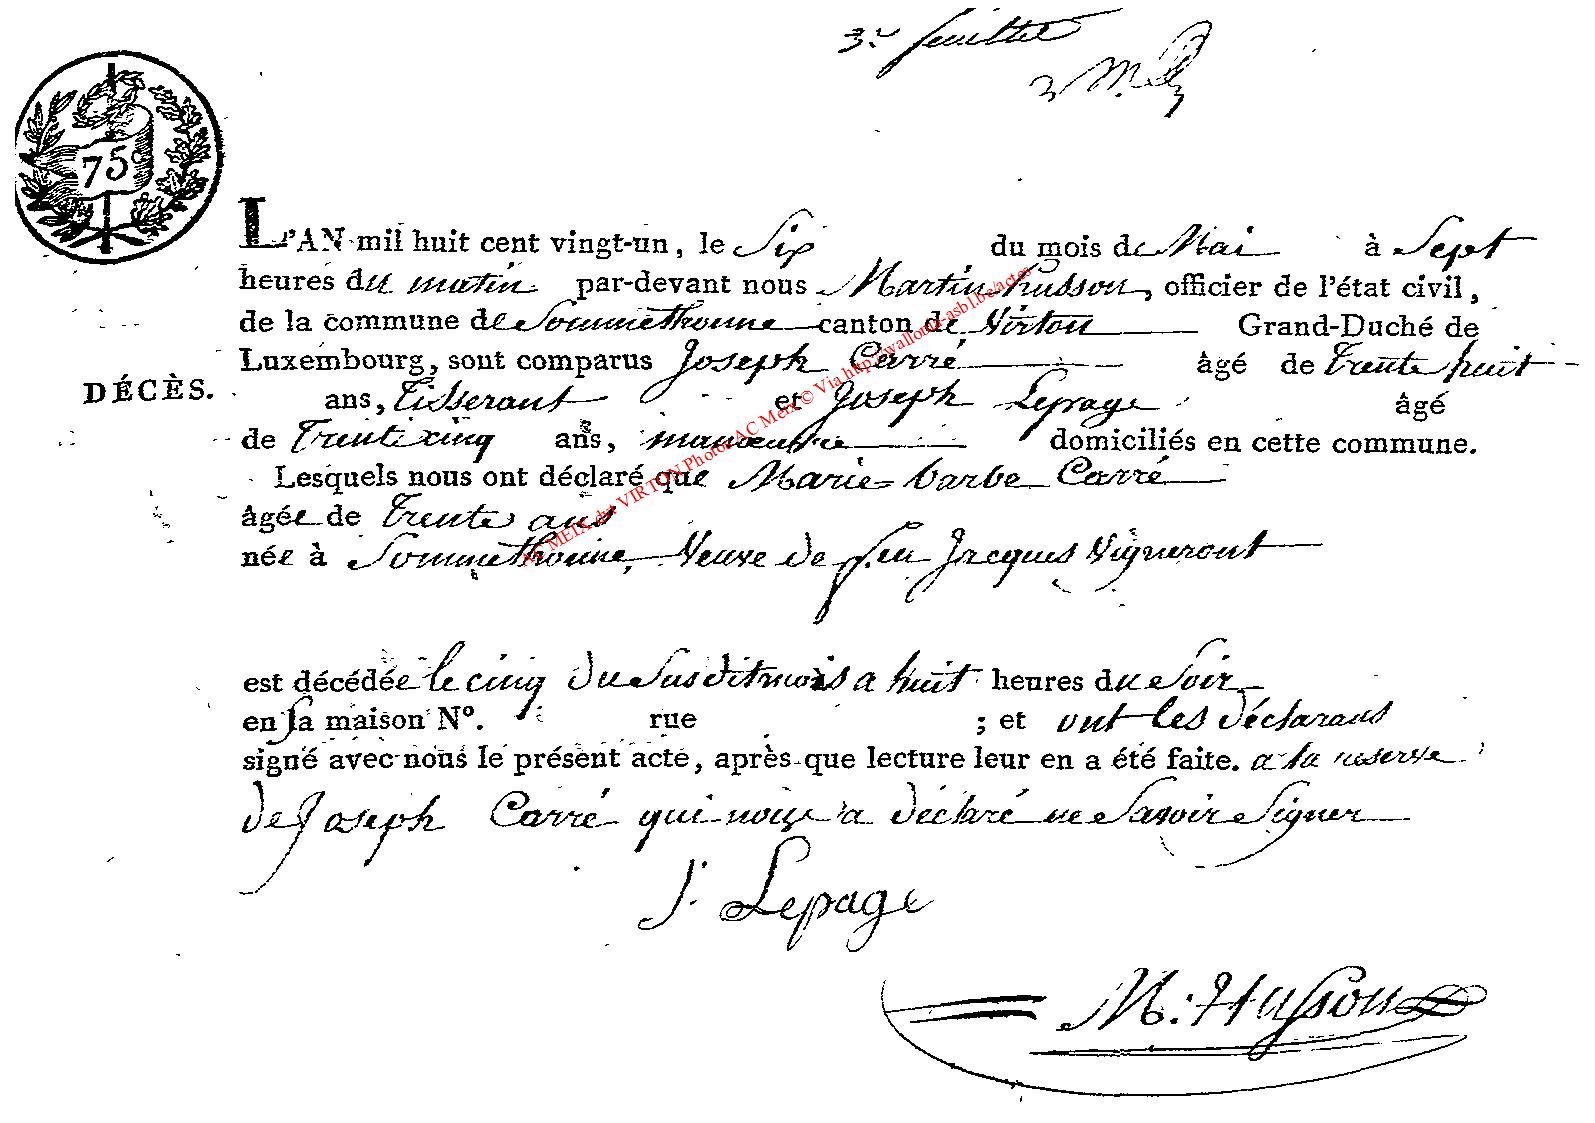 3.e feuillet
M.
75
L'AN mil huit cent vingt-un, le Six du mois de Mai à Sept
heures du matin par-devant nous Martin husson, officier de l'état civil,
de la commune de Sommethonne canton de Virton Grand-Duché de
Luxembourg, sont comparus Joseph Carré âgé de trente huit
DÉCÈS.
ans, tisserant et Joseph Lepage âgé
de trente cinq ans, manoeuvre domiciliés en cette commune.
Lesquels nous ont déclaré que Marie barbe Carré
âgée de trente ans
née à Sommethonne, Veuve de feu Jacques Vigneront
est décédée le cinq du susdit mois a huit heures du Soir
en sa maison N°. rue ; et ont les déclarans
signé avec nous le présent acte, après que lecture leur en a été faite. a la reserve
de Joseph Carré qui nous a déclaré ne Savoir Signer
J. Lepage
M. Husson
AC MEIX dvt VIRTON Photos AC Meix © Via http://wallonia-asbl.be/actes